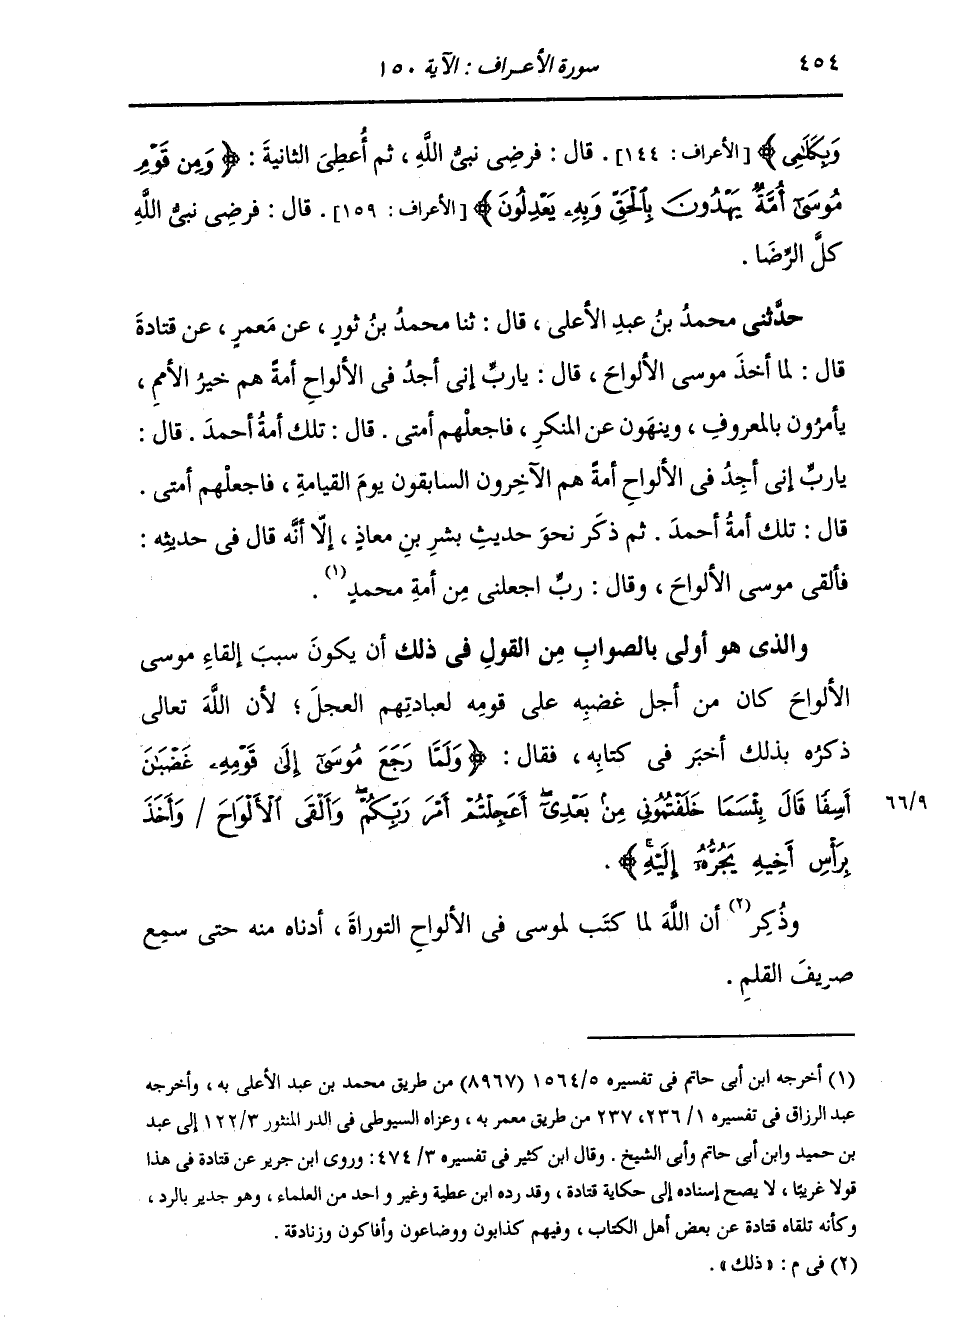 ٤٥٤ سورة الأعراف : الآية ١٥٠
وَبِكَلَٰمِى ﴾ [الأعراف : ١٤٤] . قال : فرضِى نبىُّ اللَّهِ ، ثم أُعطِىَ الثانيةَ : ﴿ وَمِن قَوْمِ
مُوسَىٰٓ أُمَّةٌ يَهْدُونَ بِٱلْحَقِّ وَبِهِۦ يَعْدِلُونَ ﴾ [الأعراف : ١٥٩] . قال : فرضِى نبىُّ اللَّهِ
كلَّ الرِّضَا .
حدَّثنى محمدُ بنُ عبدِ الأعلى ، قال : ثنا محمدُ بنُ ثورٍ ، عن مَعمرٍ ، عن قتادةَ
قال : لما أخذَ موسى الألواحَ ، قال : ياربِّ إنى أجدُ فى الألواحِ أمةً هم خيرُ الأممِ ،
يأمرُون بالمعروفِ ، وينهَون عن المنكرِ ، فاجعلْهم أمتى . قال : تلك أمةُ أحمدَ . قال :
ياربِّ إنى أجِدُ فى الألواحِ أمةً هم الآخِرون السابقون يومَ القيامةِ ، فاجعلْهم أمتى .
قال : تلك أمةُ أحمدَ . ثم ذكَر نحوَ حديثِ بشرِ بنِ معاذٍ ، إلّا أنَّه قال فى حديثِه :
فألقى موسى الألواحَ ، وقال : ربِّ اجعلنى مِن أمةِ محمدٍ(١) .
والذى هو أولى بالصوابِ مِن القولِ فى ذلك أن يكونَ سببَ إلقاءِ موسى
الألواحَ كان من أجل غضبِه على قومِه لعبادتِهم العجلَ ؛ لأن اللَّهَ تعالى
ذكرُه بذلك أخبَر فى كتابِه ، فقال : ﴿ وَلَمَّا رَجَعَ مُوسَىٰٓ إِلَىٰ قَوْمِهِۦ غَضْبَٰنَ
أَسِفًا قَالَ بِئْسَمَا خَلَفْتُمُونِى مِنۢ بَعْدِىٓ أَعَجِلْتُمْ أَمْرَ رَبِّكُمْ وَأَلْقَى ٱلْأَلْوَاحَ / وَأَخَذَ ٦٦/٩
بِرَأْسِ أَخِيهِ يَجُرُّهُۥٓ إِلَيْهِ ﴾ .
وذُكِر(٢) أن اللَّهَ لما كتَب لموسى فى الألواحِ التوراةَ ، أدناه منه حتى سمِع
صريفَ القلمِ .
(١) أخرجه ابن أبى حاتم فى تفسيره ١٥٦٤/٥ (٨٩٦٧) من طريق محمد بن عبد الأعلى به ، وأخرجه
عبد الرزاق فى تفسيره ١/ ٢٣٦، ٢٣٧ من طريق معمر به ، وعزاه السيوطى فى الدر المنثور ١٢٢/٣ إلى عبد
بن حميد وابن أبى حاتم وأبى الشيخ . وقال ابن كثير فى تفسيره ٣/ ٤٧٤: وروى ابن جرير عن قتادة فى هذا
قولا غريبًا ، لا يصح إسناده إلى حكاية قتادة ، وقد رده ابن عطية وغير و احد من العلماء ، وهو جدير بالرد ،
وكأنه تلقاه قتادة عن بعض أهل الكتاب ، وفيهم كذابون ووضاعون وأفاكون وزنادقة .
(٢) فى م : «ذلك» .